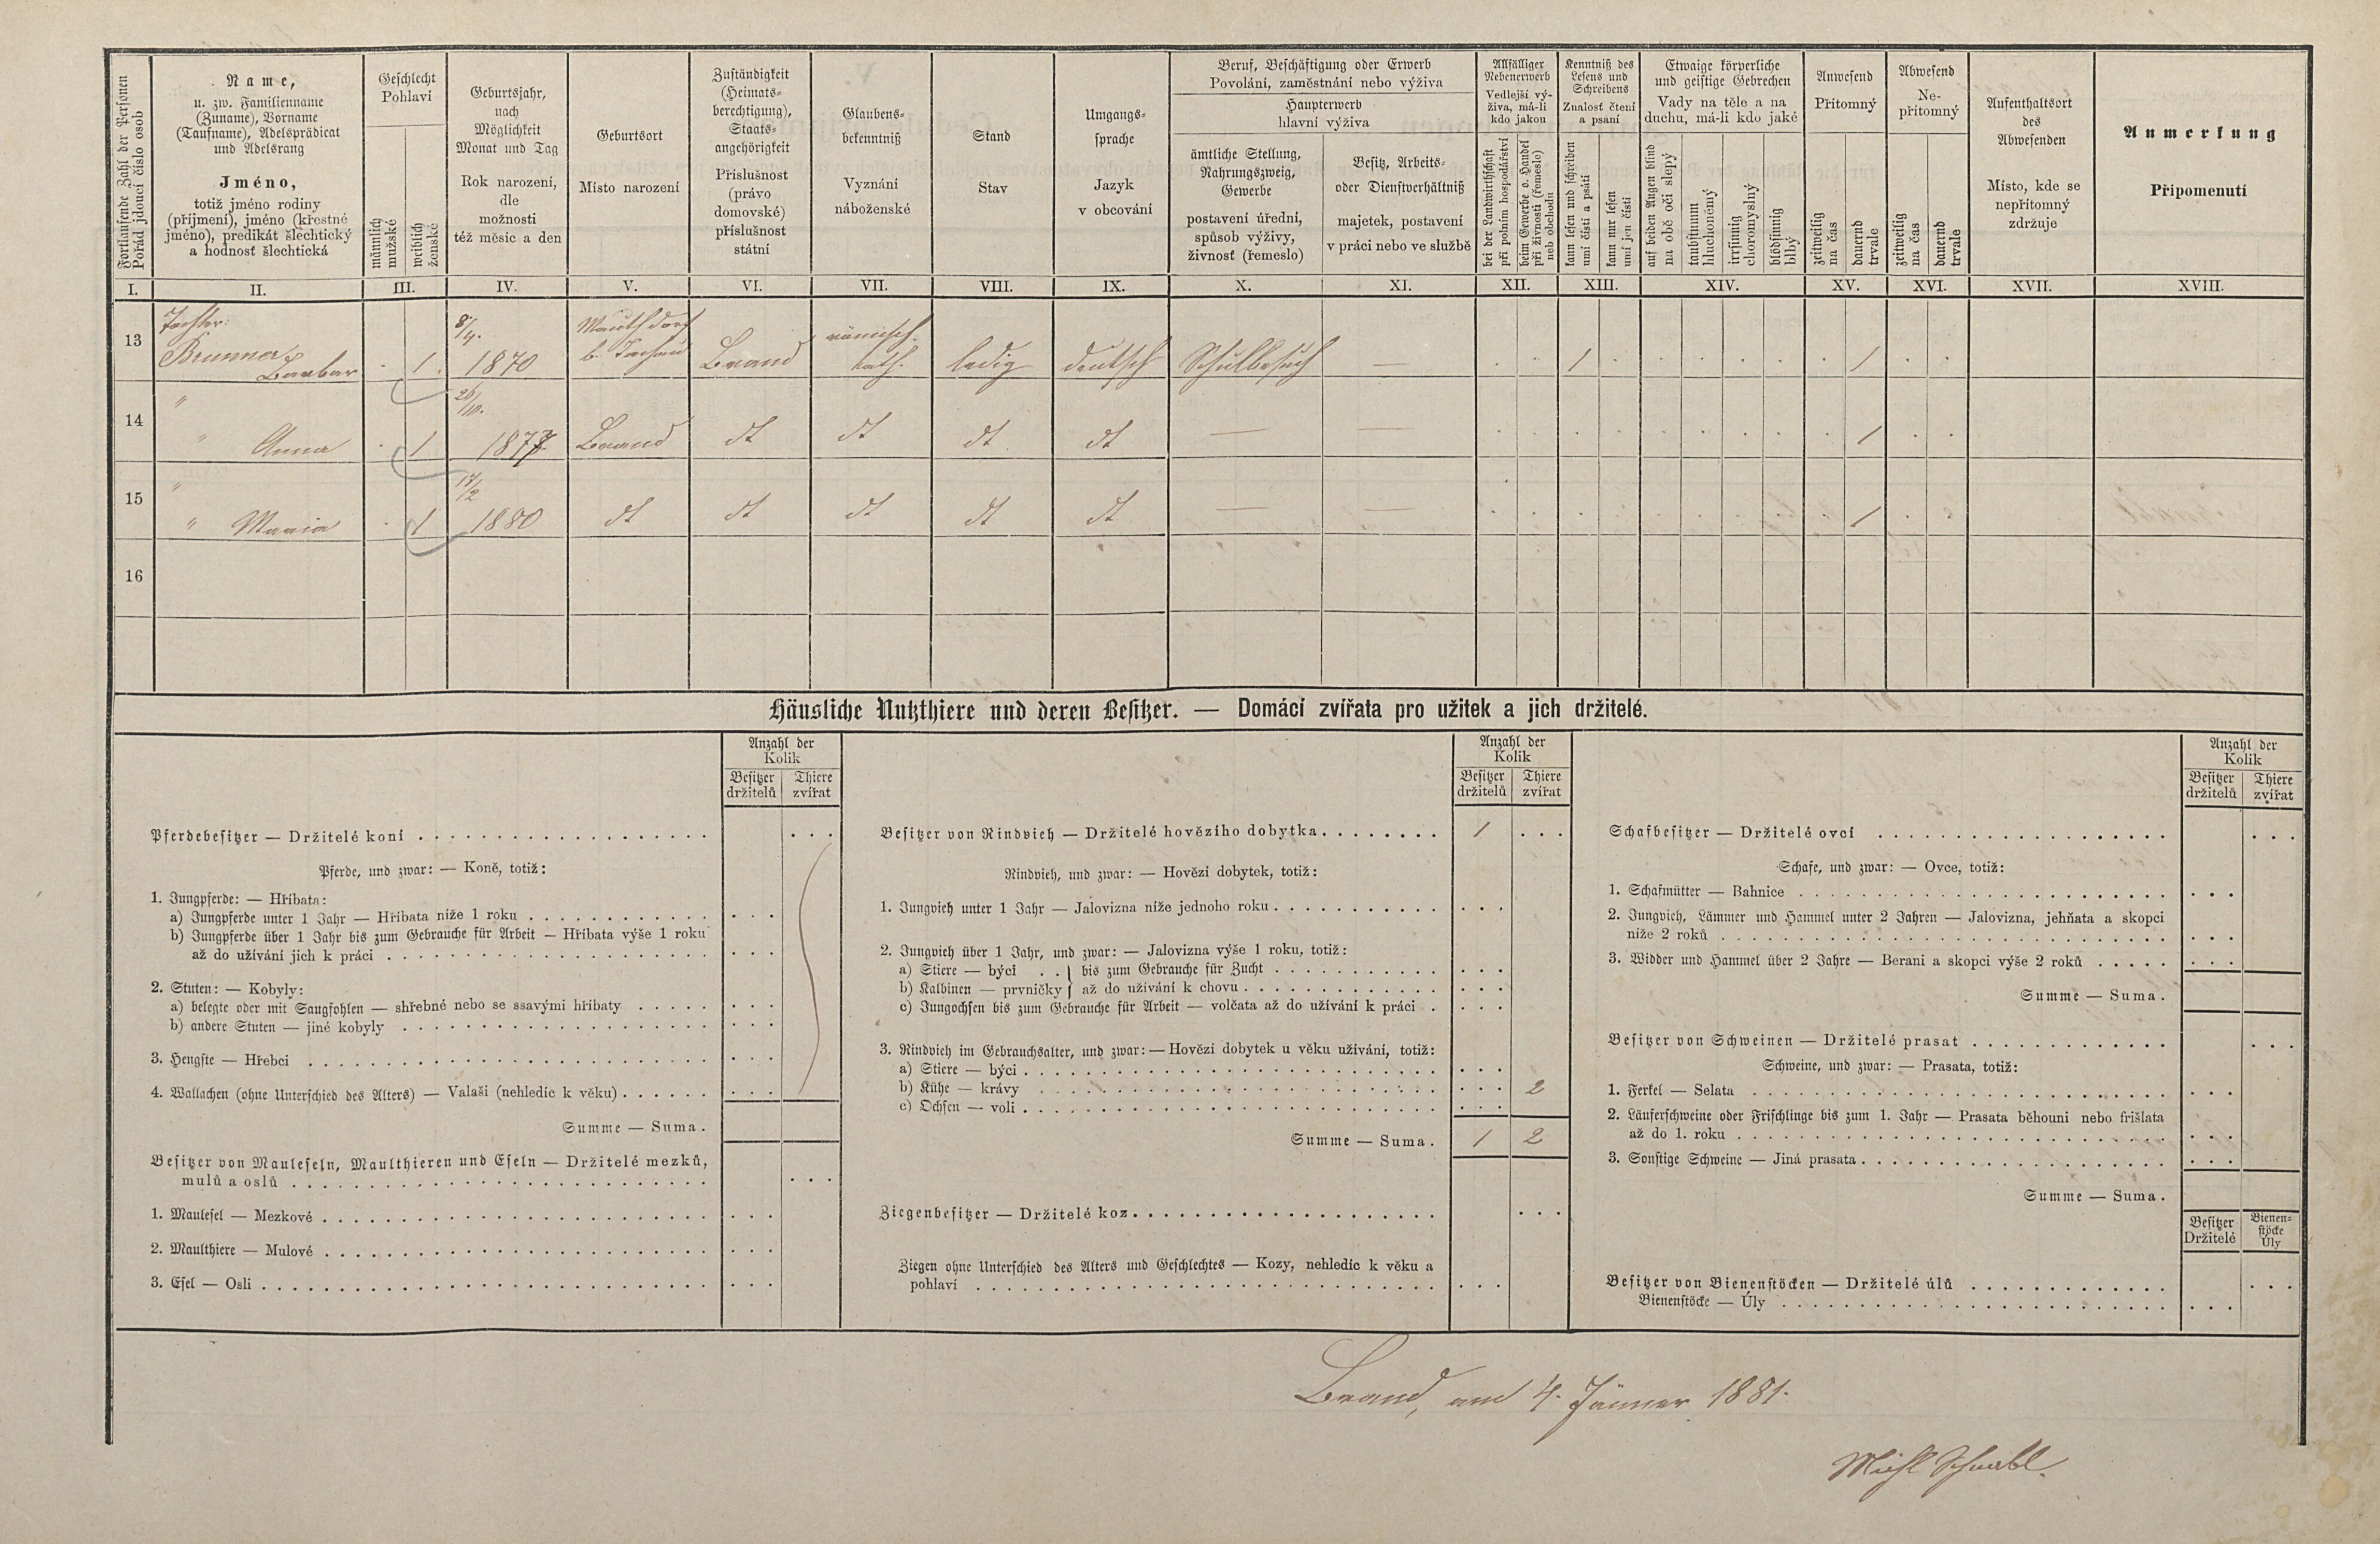 Fortlaufende Zahl der Personen
Pořád jdoucí číslo osob
Name,
u. zw. Familienname
(Zuname), Vorname
(Taufname), Adelsprädicat
und Adelsrang
Jméno,
totiž jméno rodiny
(příjmení), jméno (křestné
jméno), predikát šlechtický
a hodnosť šlechtická
Geschlecht
Pohlaví
männlich
mužské
weiblich
ženské
Geburtsjahr,
nach
Möglichkeit
Monat und Tag
Rok narození,
dle
možnosti
též měsíc a den
Geburtsort
Místo narození
Zuständigkeit
(Heimats-
berechtigung),
Staats-
angehörigkeit
Příslušnost
(právo
domovské)
příslušnost
státní
Glaubens-
bekenntniß
Vyznání
náboženské
Stand
Stav
Umgangs-
sprache
Jazyk
v obcování
Beruf, Beschäftigung oder Erwerb
Povolání, zaměstnání nebo výživa
Haupterwerb
hlavní výživa
ämtliche Stellung,
Nahrungszweig,
Gewerbe
postavení úřední,
spůsob výživy,
živnosť (řemeslo)
Besitz, Arbeits-
oder Dienstverhältniß
majetek, postavení
v práci nebo ve službě
Allfälliger
Nebenerwerb
Vedlejší vý-
živa, má-li
kdo jakou
bei der Landwirthschaft
při polním hospodářství
beim Gewerbe o. Handel
při živnosti (řemesle)
neb obchodu
Kenntniß des
Lesens und
Schreibens
Znalosť čtení
a psaní
kann lesen und schreiben
umí čísti a psáti
kann nur lesen
umí jen čísti
Etwaige körperliche
und geistige Gebrechen
Vady na těle a na
duchu, má-li kdo jaké
auf beiden Augen blind
na obě oči slepý
taubstumm
hluchoněmý
irrsinnig
choromyslný
blödsinnig
blbý
Anwesend
Přítomný
zeitweilig
na čas
dauernd
trvale
Abwesend
Ne-
přítomný
zeitweilig
na čas
dauernd
trvale
Aufenthaltsort
des
Abwesenden
Místo, kde se
nepřítomný
zdržuje
Anmerkung
Připomenutí
I. II. III. IV. V. VI. VII. VIII. IX. X. XI. XII. XIII. XIV. XV. XVI. XVII. XVIII.
13 Tochter:
Brunner
Barbar 1. 8/4. 1870 Brand römisch. kath. ledig deutsch Schulbesuch — 1 1
14 " " Anna 1 26/10. 1877 Brand dt dt dt dt — — 1
15 " " Maria 1 17/2 1880 dt dt dt dt dt — — 1
16
Häusliche Nutzthiere und deren Besitzer. — Domácí zvířata pro užitek a jich držitelé.
Anzahl der
Kolik
Besitzer
držitelů
Thiere
zvířat
Pferdebesitzer — Držitelé koní
Pferde, und zwar: — Koně, totiž:
1. Jungpferde: — Hříbata:
a) Jungpferde unter 1 Jahr — Hříbata níže 1 roku
b) Jungpferde über 1 Jahr bis zum Gebrauche für Arbeit — Hříbata výše 1 roku
až do užívání jich k práci
2. Stuten: — Kobyly:
a) belegte oder mit Saugfohlen — shřebné nebo se ssavými hříbaty
b) andere Stuten — jiné kobyly
3. Hengste — Hřebci
4. Wallachen (ohne Unterschied des Alters) — Valaši (nehledíc k věku)
Summe — Suma.
Besitzer von Mauleseln, Maulthieren und Eseln — Držitelé mezků,
mulů a oslů
1. Maulesel — Mezkové
2. Maulthiere — Mulové
3. Esel — Osli
Anzahl der
Kolik
Besitzer
držitelů
Thiere
zvířat
Besitzer von Rindvieh — Držitelé hovězího dobytka. 1
Rindvieh, und zwar: — Hovězí dobytek, totiž:
1. Jungvieh unter 1 Jahr — Jalovizna níže jednoho roku
2. Jungvieh über 1 Jahr, und zwar: — Jalovizna výše 1 roku, totiž:
a) Stiere — býci . . } bis zum Gebrauche für Zucht
b) Kalbinen — prvničky } až do užívání k chovu
c) Jungochsen bis zum Gebrauche für Arbeit — volčata až do užívání k práci
3. Rindvieh im Gebrauchsalter, und zwar: — Hovězí dobytek u věku užívání, totiž:
a) Stiere — býci
b) Kühe — krávy 2
c) Ochsen — voli
Summe — Suma. 1 2
Ziegenbesitzer — Držitelé koz
Ziegen ohne Unterschied des Alters und Geschlechtes — Kozy, nehledíc k věku a
pohlaví
Anzahl der
Kolik
Besitzer
držitelů
Thiere
zvířat
Schafbesitzer — Držitelé ovcí
Schafe, und zwar: — Ovce, totiž:
1. Schafmütter — Bahnice
2. Jungvieh, Lämmer und Hammel unter 2 Jahren — Jalovizna, jehňata a skopci
níže 2 roků
3. Widder und Hammel über 2 Jahre — Berani a skopci výše 2 roků
Summe — Suma.
Besitzer von Schweinen — Držitelé prasat
Schweine, und zwar: — Prasata, totiž:
1. Ferkel — Selata
2. Läuferschweine oder Frischlinge bis zum 1. Jahr — Prasata běhouni nebo frišlata
až do 1. roku
3. Sonstige Schweine — Jiná prasata
Summe — Suma.
Besitzer
Držitelé
Bienen-
stöcke
Úly
Besitzer von Bienenstöcken — Držitelé úlů
Bienenstöcke — Úly
Brand, am 4. Jänner 1881.
Michl Schnabl.